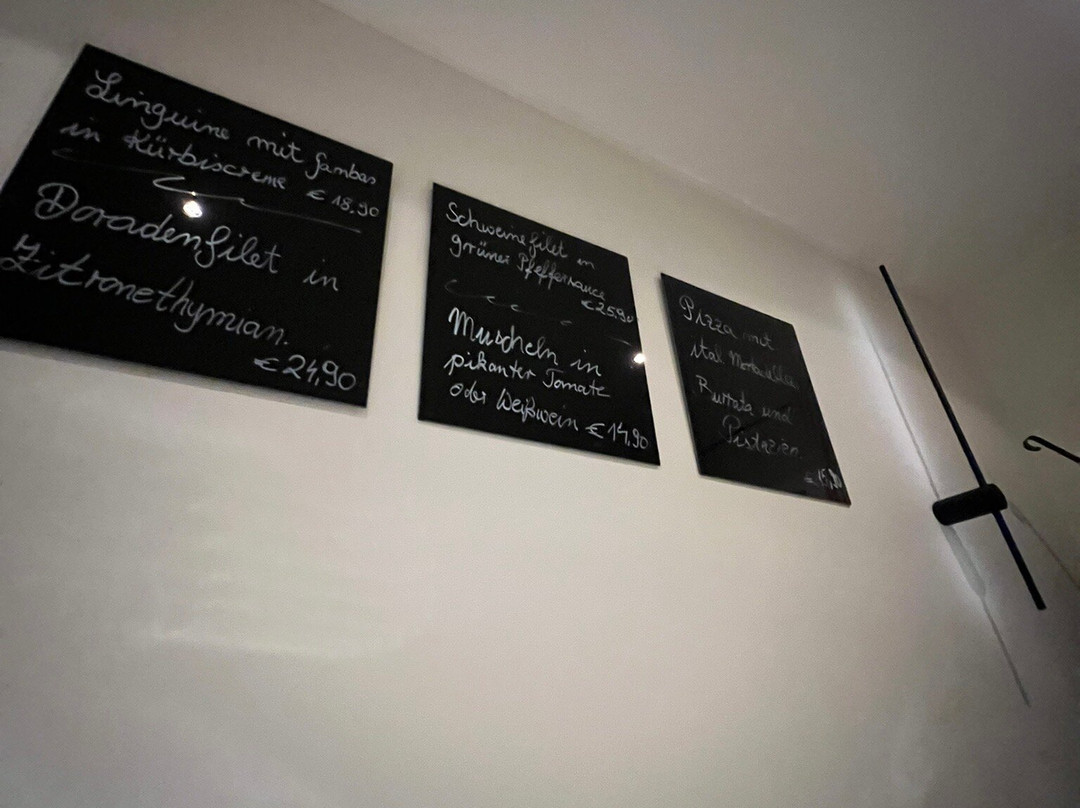 Linguine mit Gambas
in Kürbiscreme € 18,90
Doradenfilet in
Zitronethymian.
€ 24,90
Schweinefilet in
grüner Pfeffersauce
€ 25,90
Muscheln in
pikanter Tomate
oder Weißwein € 14,90
Pizza mit
ital Mortadella
Burrata und
Pistazien.